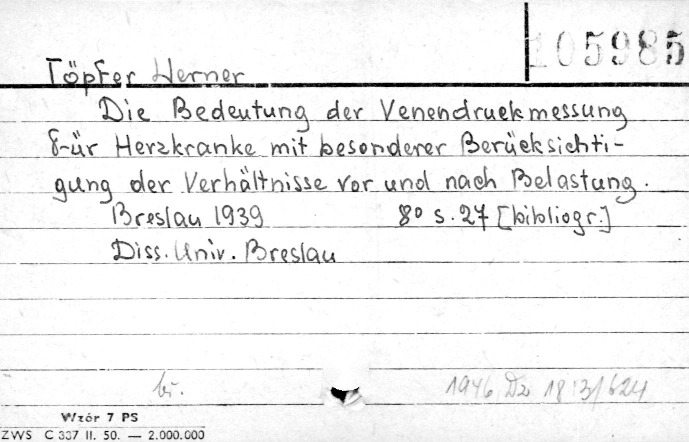 105985
Töpfer Werner
Die Bedeutung der Venendruckmessung
für Herzkranke mit besonderer Berücksichti-
gung der Verhältnisse vor und nach Belastung.
Breslau 1939 8° s. 27 [bibliogr.]
Diss. Univ. Breslau
br. 1946 Dz 18
Wzór 7 PS
ZWS C 337 II. 50. — 2.000.000